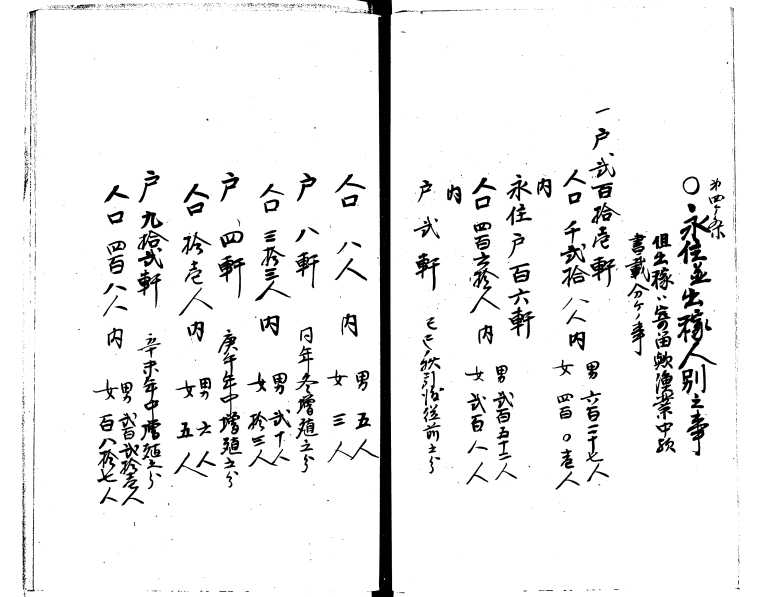 第四ケ条
〇永住並出稼人別之事
但出稼ハ寄留歟漁業中歟
書載分ケノ事
一戸弐百拾壱軒
人口千弐拾八人内
男六百二十七人
女四百〇壱人
内
永住戸百六軒
人口四百六拾人内
男弐百五十二人
女弐百八人
内
戸弐軒
己巳ノ秋引渡後従前之分
人口八人内
男五人
女三人
戸八軒
同年冬増殖之分
人口三拾三人内
男弐十人
女拾三人
戸四軒
庚午年中増殖之分
人口拾壱人内
男六人
女五人
戸九拾弐軒
辛未年中増殖之分
人口四百八人内
男弐百弐拾壱人
女百八拾七人